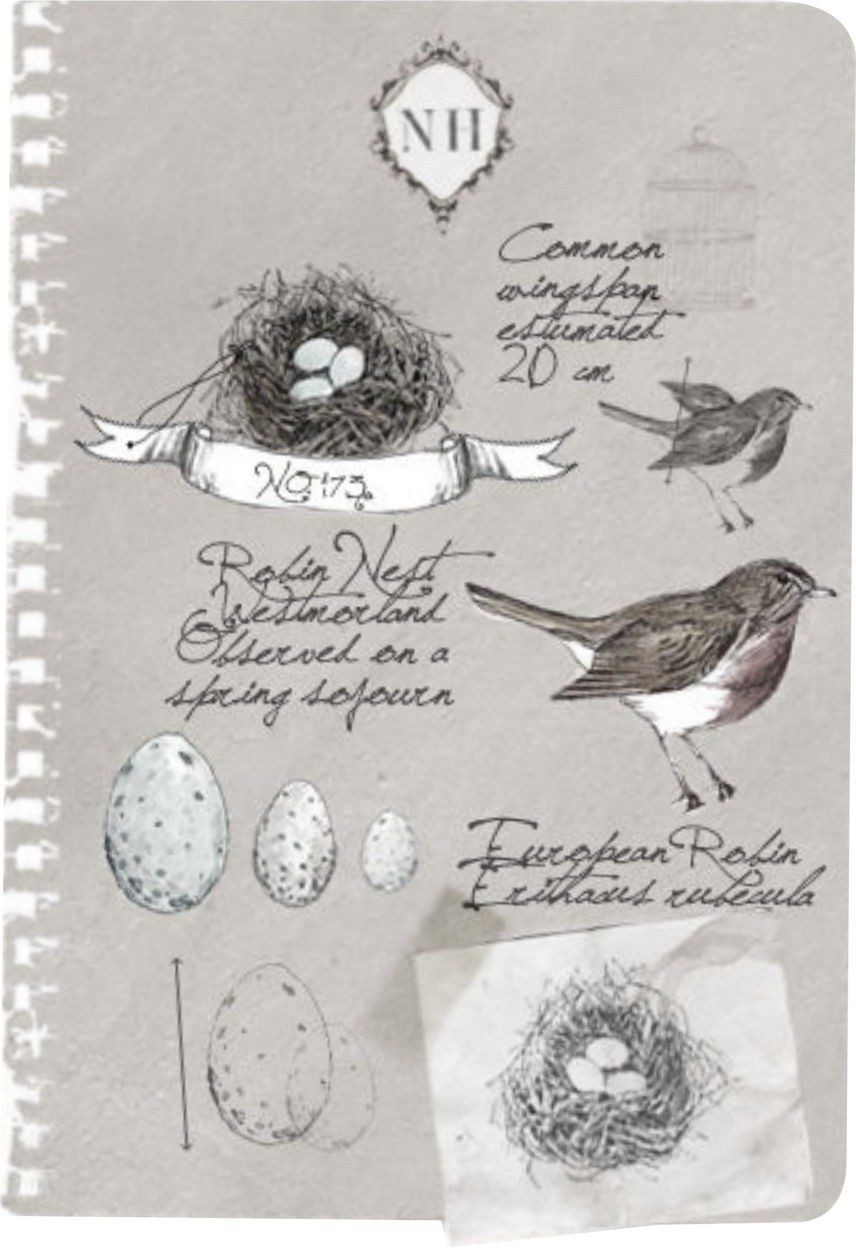 NH
Common
wingspan
estimated
20 cm
No. 173.
Robin Nest
Westmorland
Observed on a
spring sojourn
European Robin
Erithacus rubecula